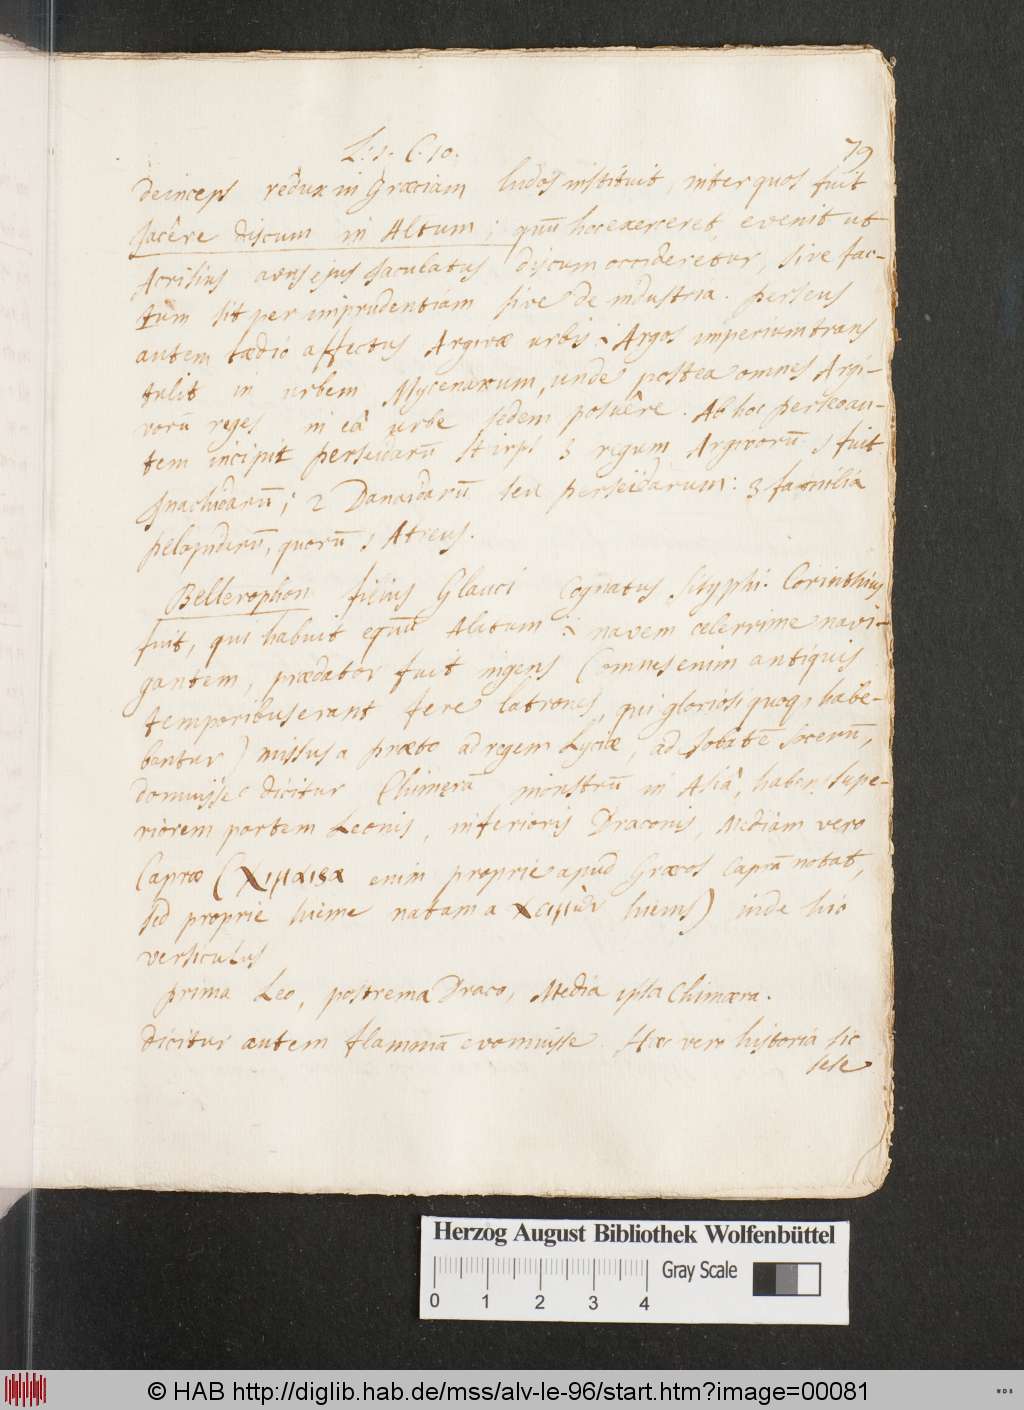 L: 1. C. 10.
79
Deinceps redux in Græciam ludos instituit, inter quos fuit
jacêre discum in Altum; quũ hoc exerceret, evenit ut
Acrisius avus ejus jaculatus discum occideretur, sive fac-
tum sit per imprudentiam sive de industria. Perseus
autem tædio affectus Argivæ urbis, Argos imperium trans
tulit in urbem Mycenarum, unde postea omnes Argi-
vorũ reges in eâ urbe sedem posuêre. Ab hoc perseo au-
tem incipit perseidarũ stirps 3 regum Argivorũ. 1 fuit
Inachidarũ; 2 Danaidarũ seu perseidarum: 3 familia
pelopidarũ, quorũ 1 Atreus.
Bellerophon filius Glauci Cognatus Sisyphi. Corinthius
fuit, qui habuit equũ Alatum i. navem celerrime navi-
gantem, prædator fuit ingens (omnes enim antiquis
temporibus erant fere latrones, qui gloriosi quoq, habe-
bantur) missus a præto ad regem Lyciæ, ad Jobatẽ socerũ,
domuisse dicitur Chimærã monstrũ in Asiâ, habens supe-
riorem partem Leonis, inferioris Draconis, Mediam vero
Capræ (χιμαιρα enim proprie apud Græcos Caprã notat,
sed proprie hieme natam a χειμὼν hiems) inde hic
versiculus
prima Leo, postrema Draco, Media ipsa Chimæra.
dicitur autem flammã evomuisse. Hæc vero historia sic
sese
Herzog August Bibliothek Wolfenbüttel
Gray Scale
0 1 2 3 4
© HAB http://diglib.hab.de/mss/alv-le-96/start.htm?image=00081